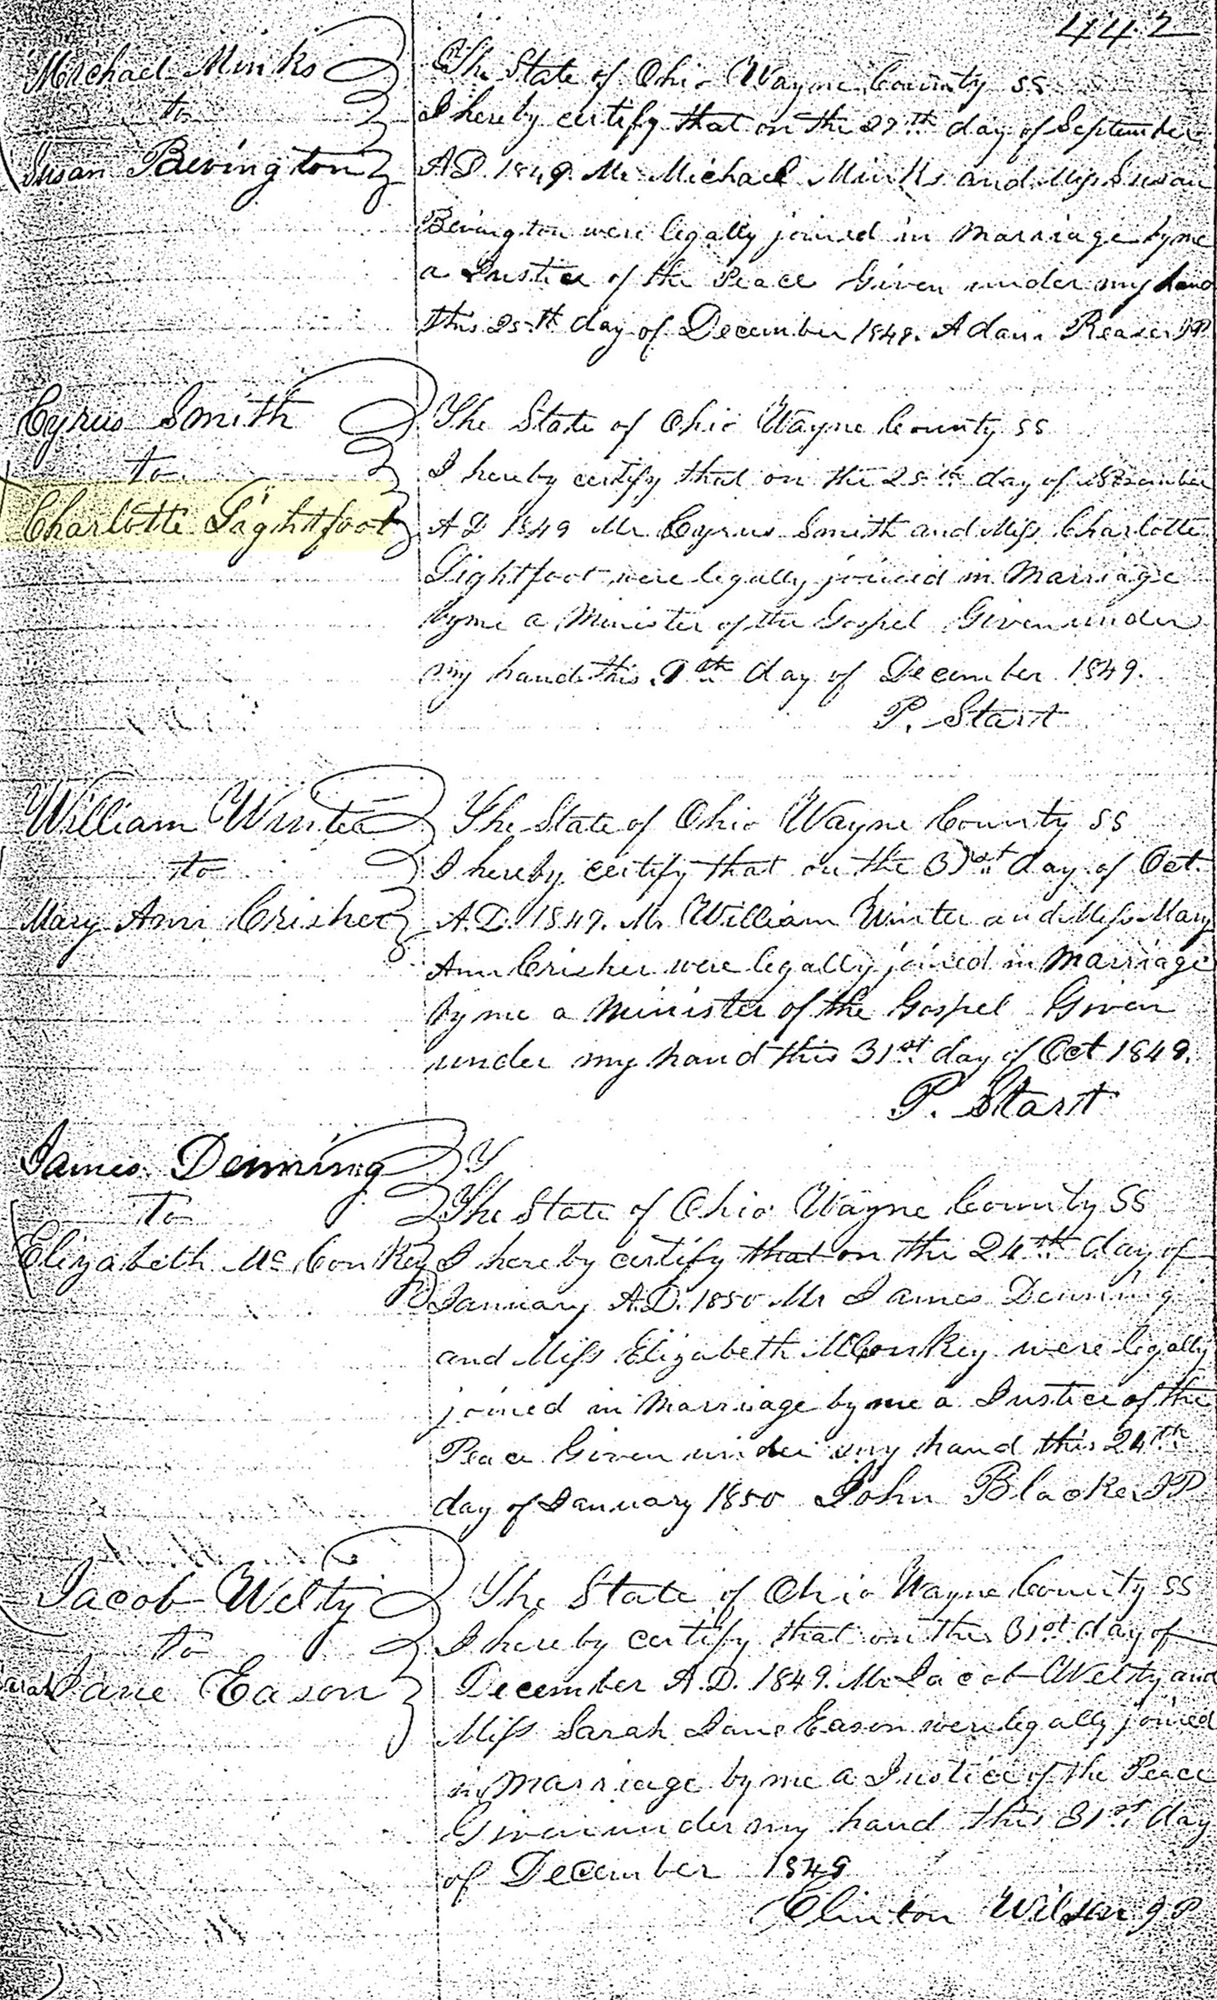 442
Michael Minks
to
Susan Bevington
The State of Ohio Wayne County ss
I hereby certify that on the 27th day of September
A.D. 1849. Mr. Michael Minks and Miss Susan
Bevington were legally joined in Marriage by me
a Justice of the Peace Given under my hand
this 25th day of December 1849. Adam Reaser JP.
Cyrus Smith
to
Charlotte Lightfoot
The State of Ohio Wayne County ss
I hereby certify that on the 25th day of
A D 1849 Mr Cyrus Smith and Miss Charlotte
Lightfoot were legally joined in Marriage
by me a Minister of the Gospel Given under
my hand this 9th day of December 1849.
P. Start
William Winter
to
Mary Ann Crisher
The State of Ohio Wayne County SS
I hereby certify that on the 31st day of Oct.
A.D. 1849. Mr William Winter and Miss Mary
Ann Crisher were legally joined in Marriage
by me a Minister of the Gospel Given
under my hand this 31st day of Oct 1849.
P. Start
James Denning
To
Elizabeth Mc Conkey
The State of Ohio Wayne County SS
I hereby certify that on the 24th day of
January A.D. 1850 Mr James Denning
and Miss Elizabeth McConkey were legally
joined in Marriage by me a Justice of the
Peace Given under my hand this 24th
day of January 1850 John Blocker JP
Jacob Welty
to
Sarah Jane Eason
The State of Ohio Wayne County SS
I hereby certify that on the 31st day of
December A.D. 1849. Mr Jacob Welty and
Miss Sarah Jane Eason were legally joined
in Marriage by me a Justice of the Peace
Given under my hand this 31st day
of December 1849
Clinton Wilson J P